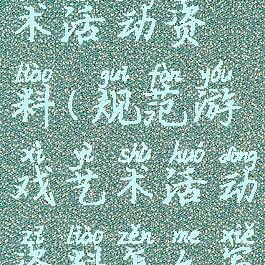 术活动资
liào guī fàn yóu
料(规范游
xì yì shù huó dòng
戏艺术活动
zī liào zěn me xiě
资料怎么写